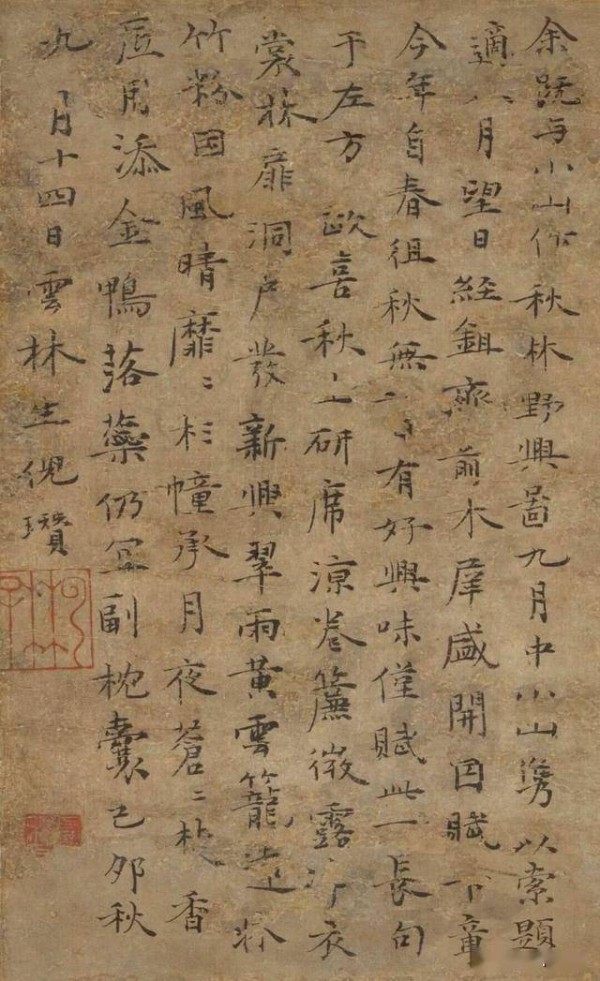 余既与小山作秋林野興圖九月中小山携以索題
適八月望日經鉏齋前木犀盛開因賦下章
今年自春徂秋無一日有好興味僅賦此一長句
于左方 政喜秋生研席凉卷簾微露净衣
裳林扉洞户發新興翠雨黄雲籠遠林
竹粉因風晴靡〻杉幢承月夜蒼〻枝香
匝月添金鴨落蘂仍宜副枕囊己卯秋
九月十四日雲林生倪瓚